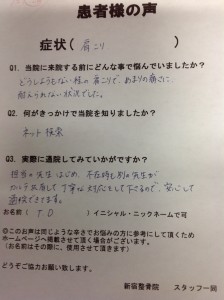 患者様の声
症状( 肩こり )
Q1. 当院に来院する前にどんな事で悩んでいましたか?
どうしようもない程の肩こりで、あまりの痛さに
耐えられない状況でした。
Q2. 何がきっかけで当院を知りましたか?
ネット検索
Q3. 実際に通院してみていかがですか?
担当の先生はじめ、不在時も別の先生が
丁寧な対応をして下さるので、安心して
通院できます。
お名前( T D )イニシャル・ニックネームで可
◎このお声は同じような辛さでお悩みの方に参考にして頂くため
ホームページへ掲載させて頂く場合がございます。
(お名前はその際に、使用させて頂きます)
どうぞご協力お願い致します。
新宿整骨院 スタッフ一同